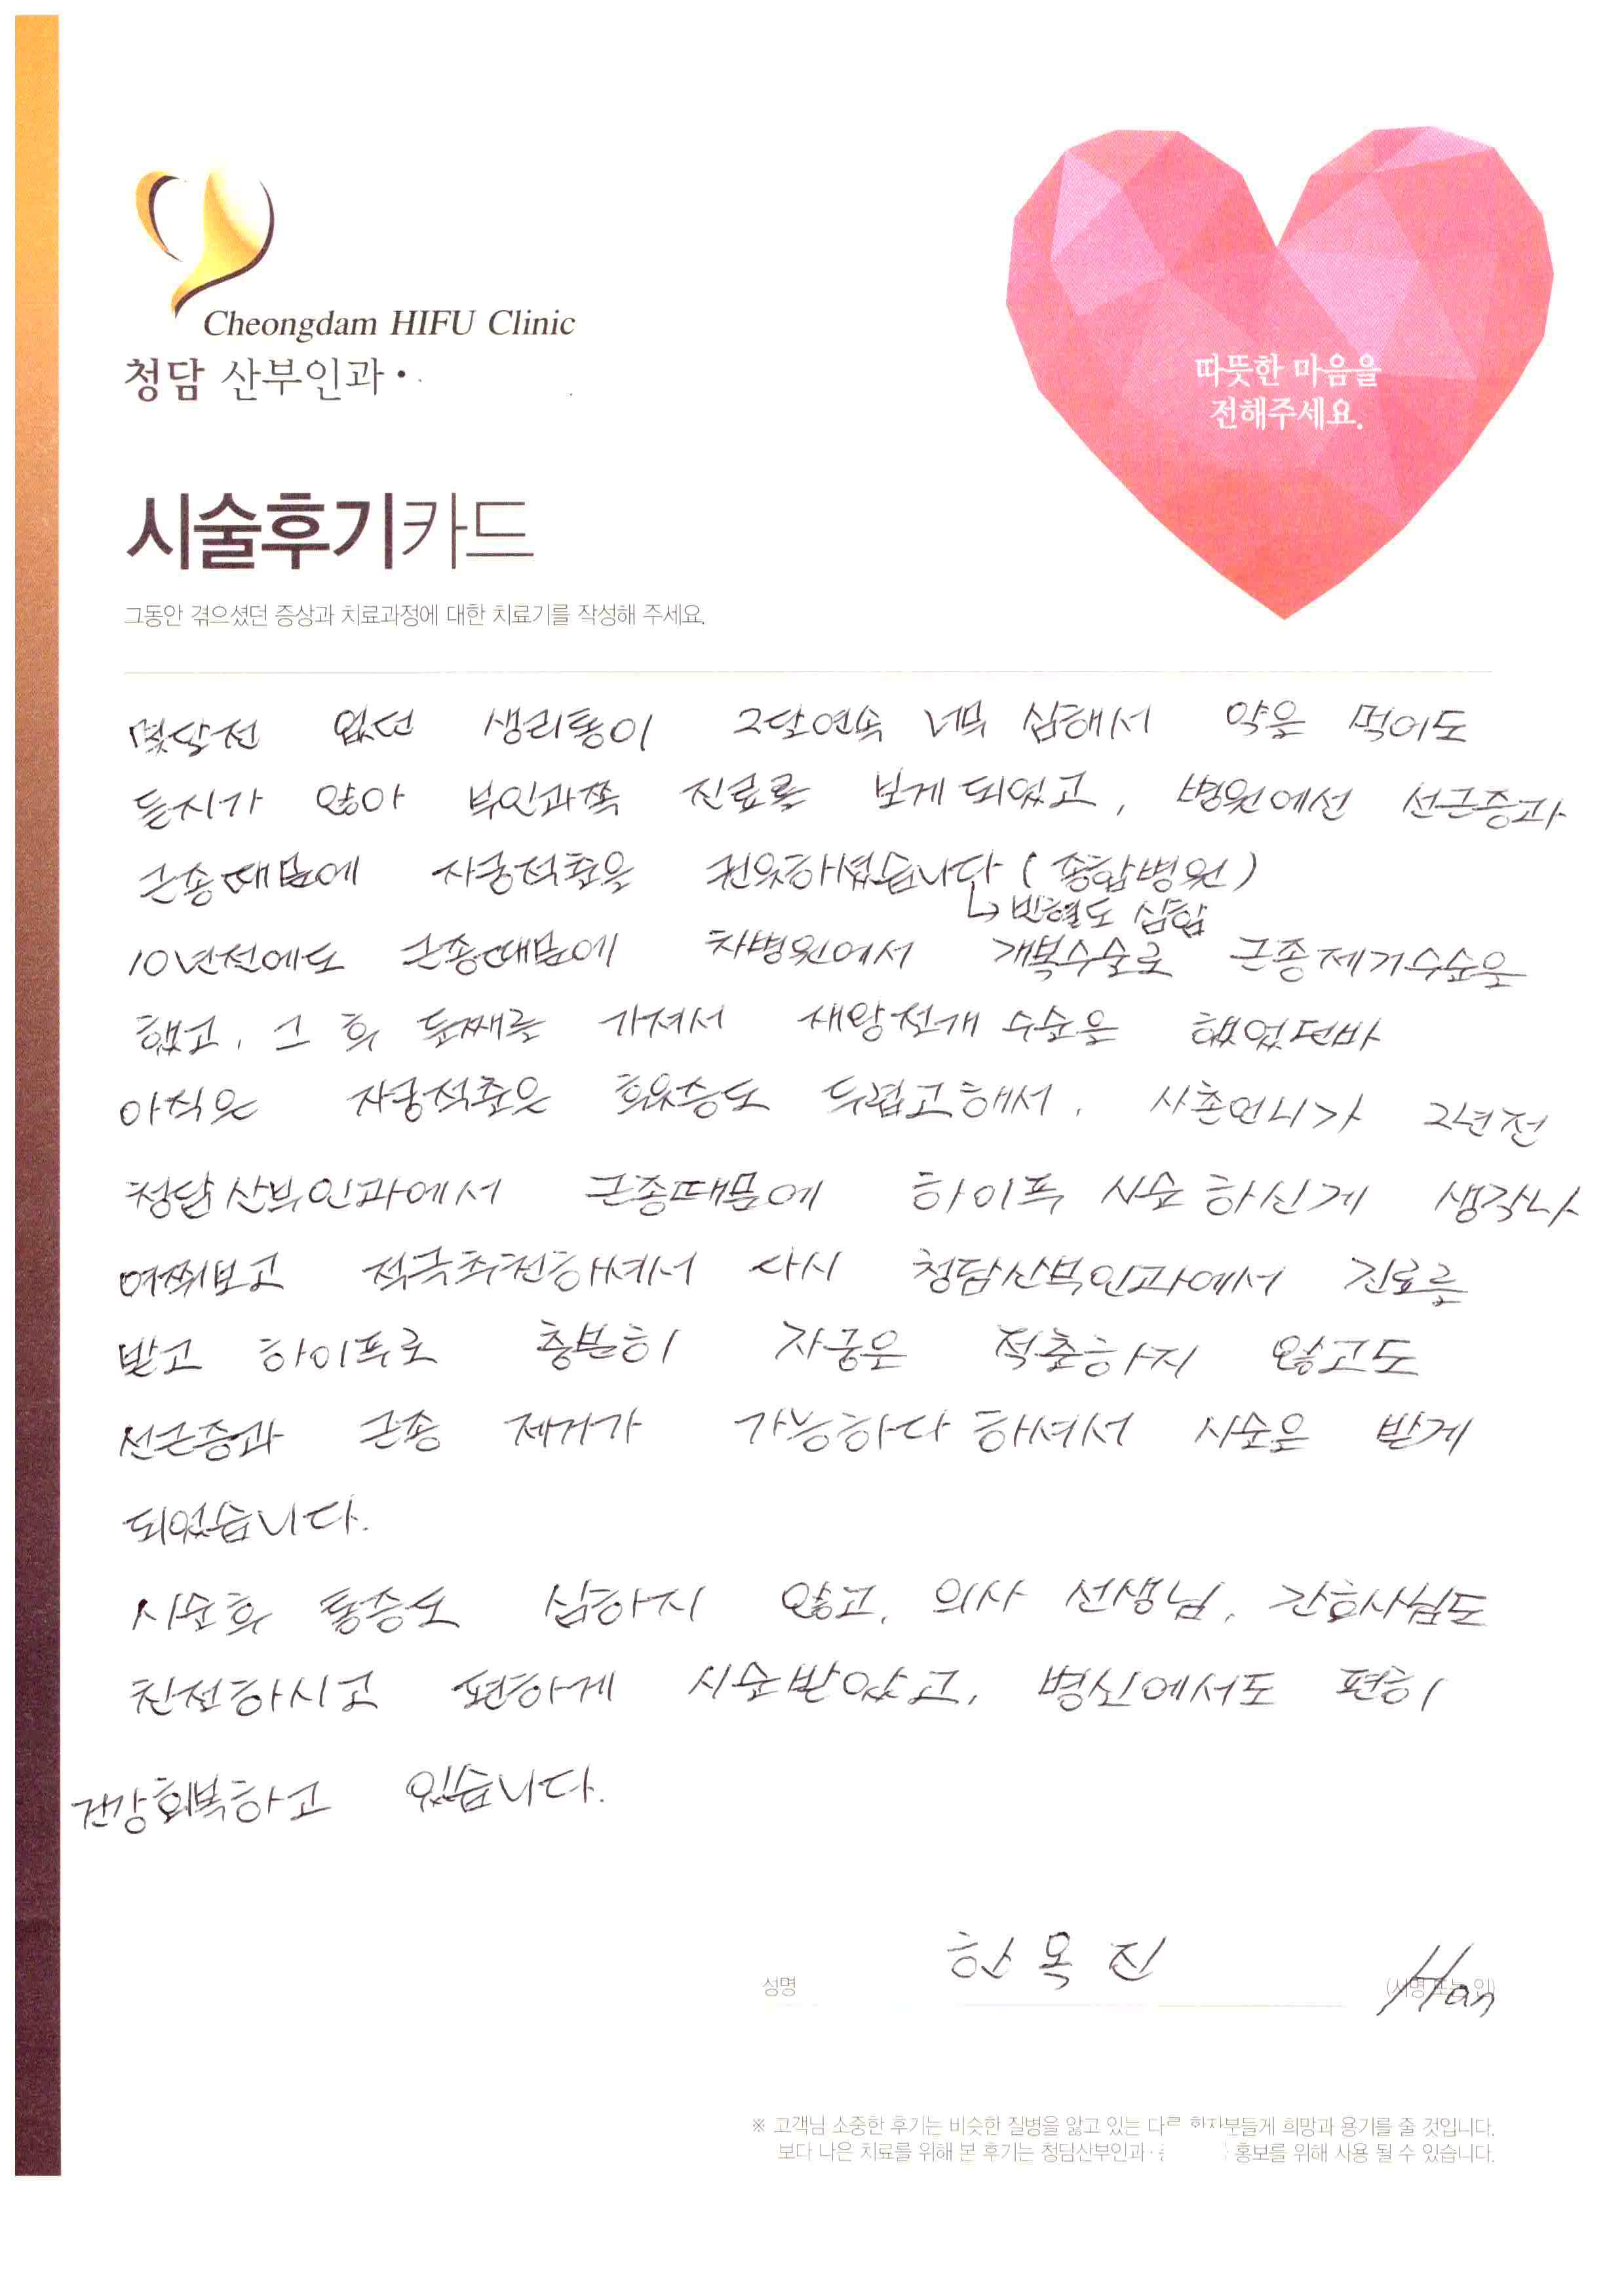 Cheongdam HIFU Clinic
청담 산부인과
따뜻한 마음을
전해주세요.
시술후기카드
그동안 겪으셨던 증상과 치료과정에 대한 치료기를 작성해 주세요.
몇달전 없던 생리통이 2달연속 너무 심해서 약을 먹어도
듣지가 않아 부인과쪽 진료를 보게 되었고, 병원에선 선근증과
근종때문에 자궁적출을 권유하셨습니다 (종합병원)
↳ 빈혈도 심함
10년전에도 근종때문에 차병원에서 개복수술로 근종제거수술을
했고, 그 후 둘째를 가져서 제왕절개 수술을 했었던바
아직은 자궁적출은 후유증도 두렵고해서, 사촌언니가 2년전
청담산부인과에서 근종때문에 하이푸 시술하신게 생각나
여쭤보고 적극추천하셔서 다시 청담산부인과에서 진료를
받고 하이푸로 충분히 자궁은 적출하지 않고도
선근증과 근종 제거가 가능하다 하셔서 시술을 받게
되었습니다.
시술후 통증도 심하지 않고, 의사 선생님, 간호사님도
친절하시고 편하게 시술받았고, 병실에서도 편히
건강회복하고 있습니다.
성명 한옥진 (서명 또는 인) Han
※ 고객님 소중한 후기는 비슷한 질병을 앓고 있는 다른 환자분들게 희망과 용기를 줄 것입니다.
보다 나은 치료를 위해 본 후기는 청담산부인과· 홍보를 위해 사용 될 수 있습니다.